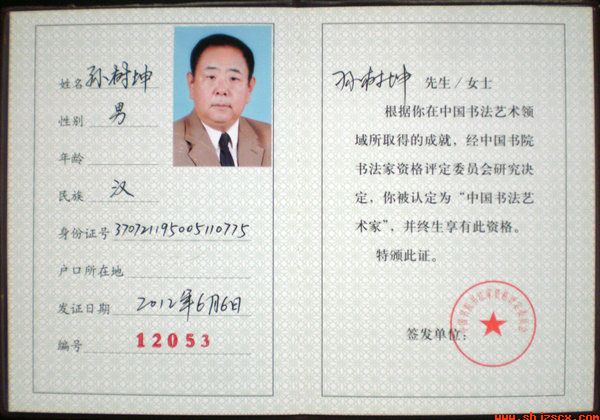 姓名 孙树坤
性别 男
年龄
民族 汉
身份证号 370721195005110775
户口所在地
发证日期 2012年6月6日
编号 12053
孙树坤 先生/女士
根据你在中国书法艺术领
域所取得的成就，经中国书院
书法家资格评定委员会研究决
定，你被认定为“中国书法艺
术家”，并终生享有此资格。
特颁此证。
签发单位：
www.shjzscx.com